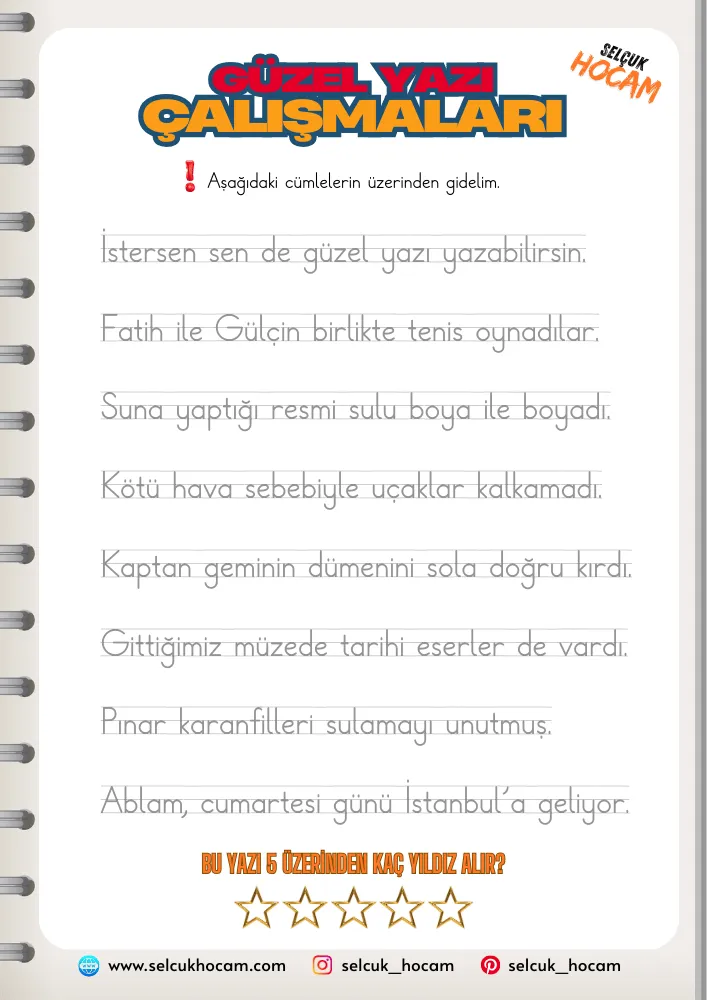 SELÇUK
HOCAM
GÜZEL YAZI
ÇALIŞMALARI
! Aşağıdaki cümlelerin üzerinden gidelim.
İstersen sen de güzel yazı yazabilirsin.
Fatih ile Gülçin birlikte tenis oynadılar.
Suna yaptığı resmi sulu boya ile boyadı.
Kötü hava sebebiyle uçaklar kalkamadı.
Kaptan geminin dümenini sola doğru kırdı.
Gittiğimiz müzede tarihi eserler de vardı.
Pınar karanfilleri sulamayı unutmuş.
Ablam, cumartesi günü İstanbul'a geliyor.
BU YAZI 5 ÜZERİNDEN KAÇ YILDIZ ALIR?
www.selcukhocam.com selcuk_hocam selcuk_hocam